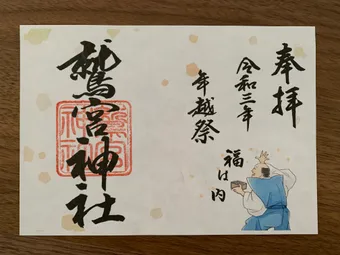 奉拝
令和三年
年越祭
福は内
鷲宮神社